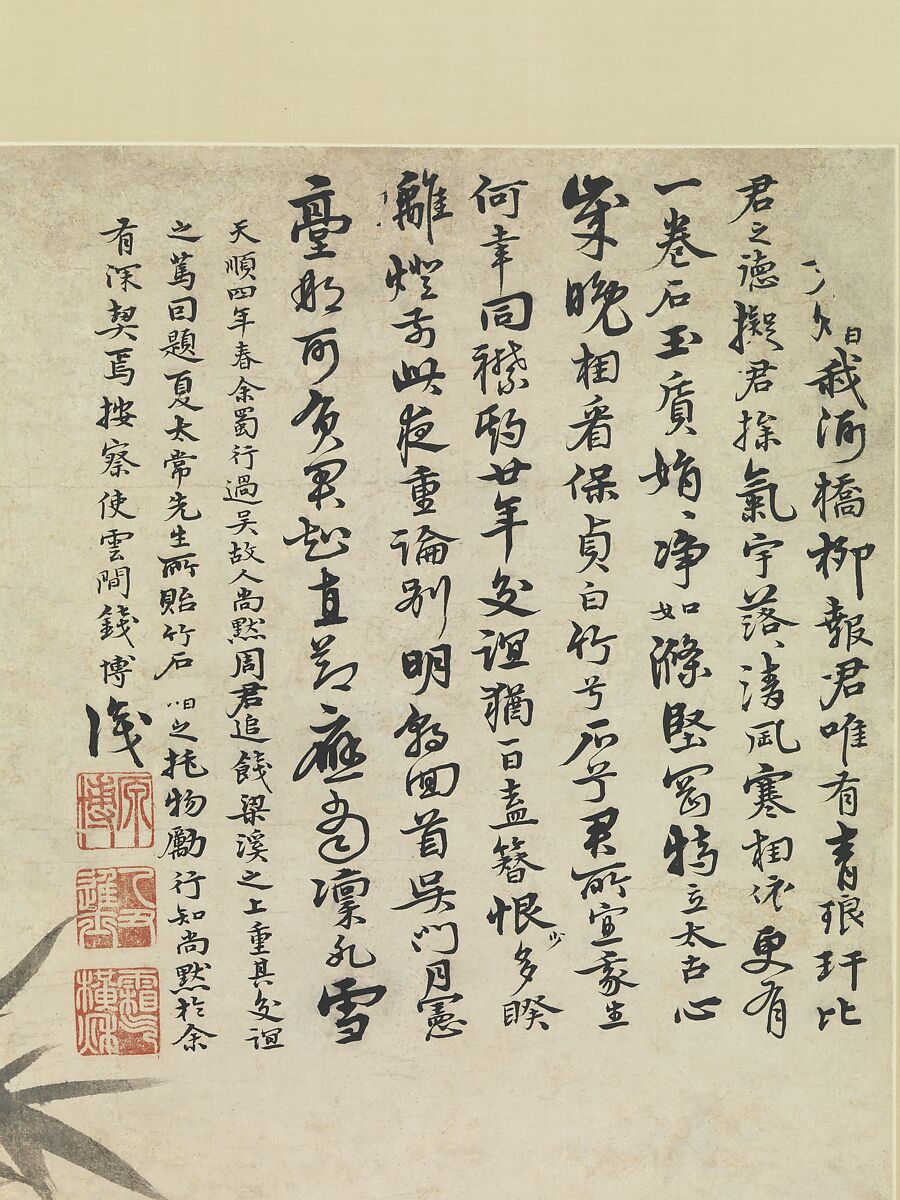 栽河橋柳報君唯有青琅玕比
君之德擬君操氣宇落〻清風寒相依更有
一卷石玉質娟〻淨如滌堅筠特立太古心
歲晚相看保貞白竹兮石兮君所宜我生
何幸同襟韵廿年交誼猶一日盍簪恨少多睽
離燈前此夜重論別明朝回首吳門月憲
臺那可負君知直節應當凜冰雪
天順四年春余蜀行過吳故人尚默周君追餞梁溪之上重其交誼
之篤因題夏太常先生所貽竹石 之托物勵行知尚默於余
有深契焉按察使雲間錢博識
原博